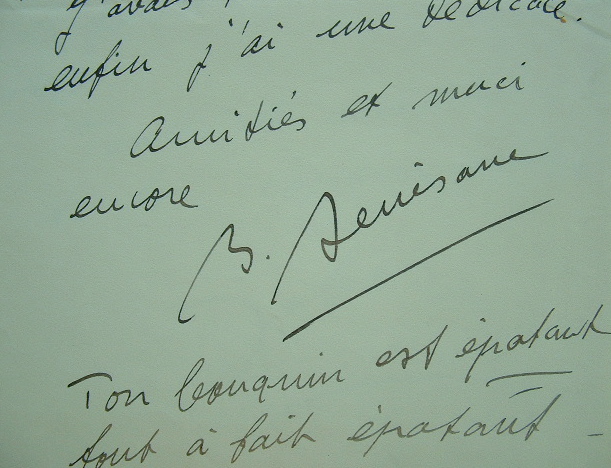 J'avais
enfin j'ai une dédicace.
Amitiés et merci
encore
B.
Ton bouquin est épatant
tout à fait épatant -